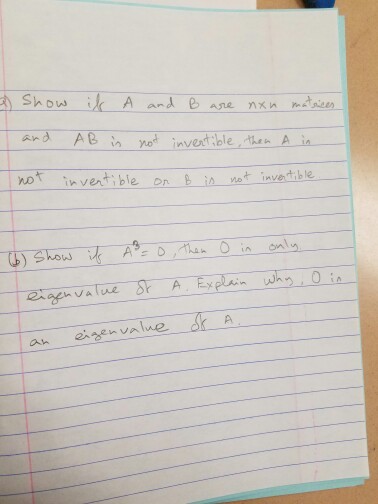 a) Show if A and B are nxn matrices
and AB is not invertible, then A is
not invertible or B is not invertible
(b) Show if A³ = 0, then 0 is only
eigenvalue of A. Explain why, 0 is
an eigenvalue of A.